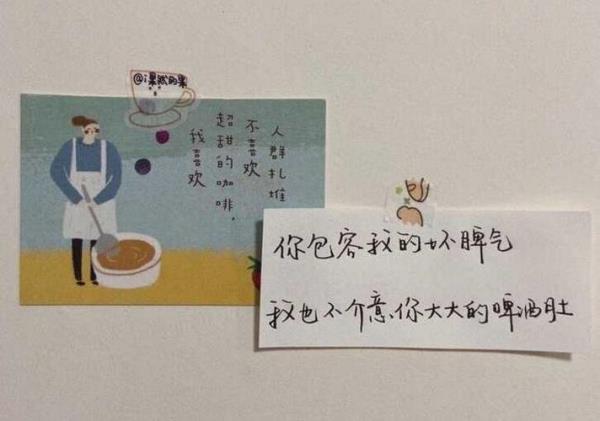 @i果然的果
我喜欢
超甜的咖啡,
不喜欢
人群扎堆
你包容我的坏脾气
我也不介意你大大的啤酒肚